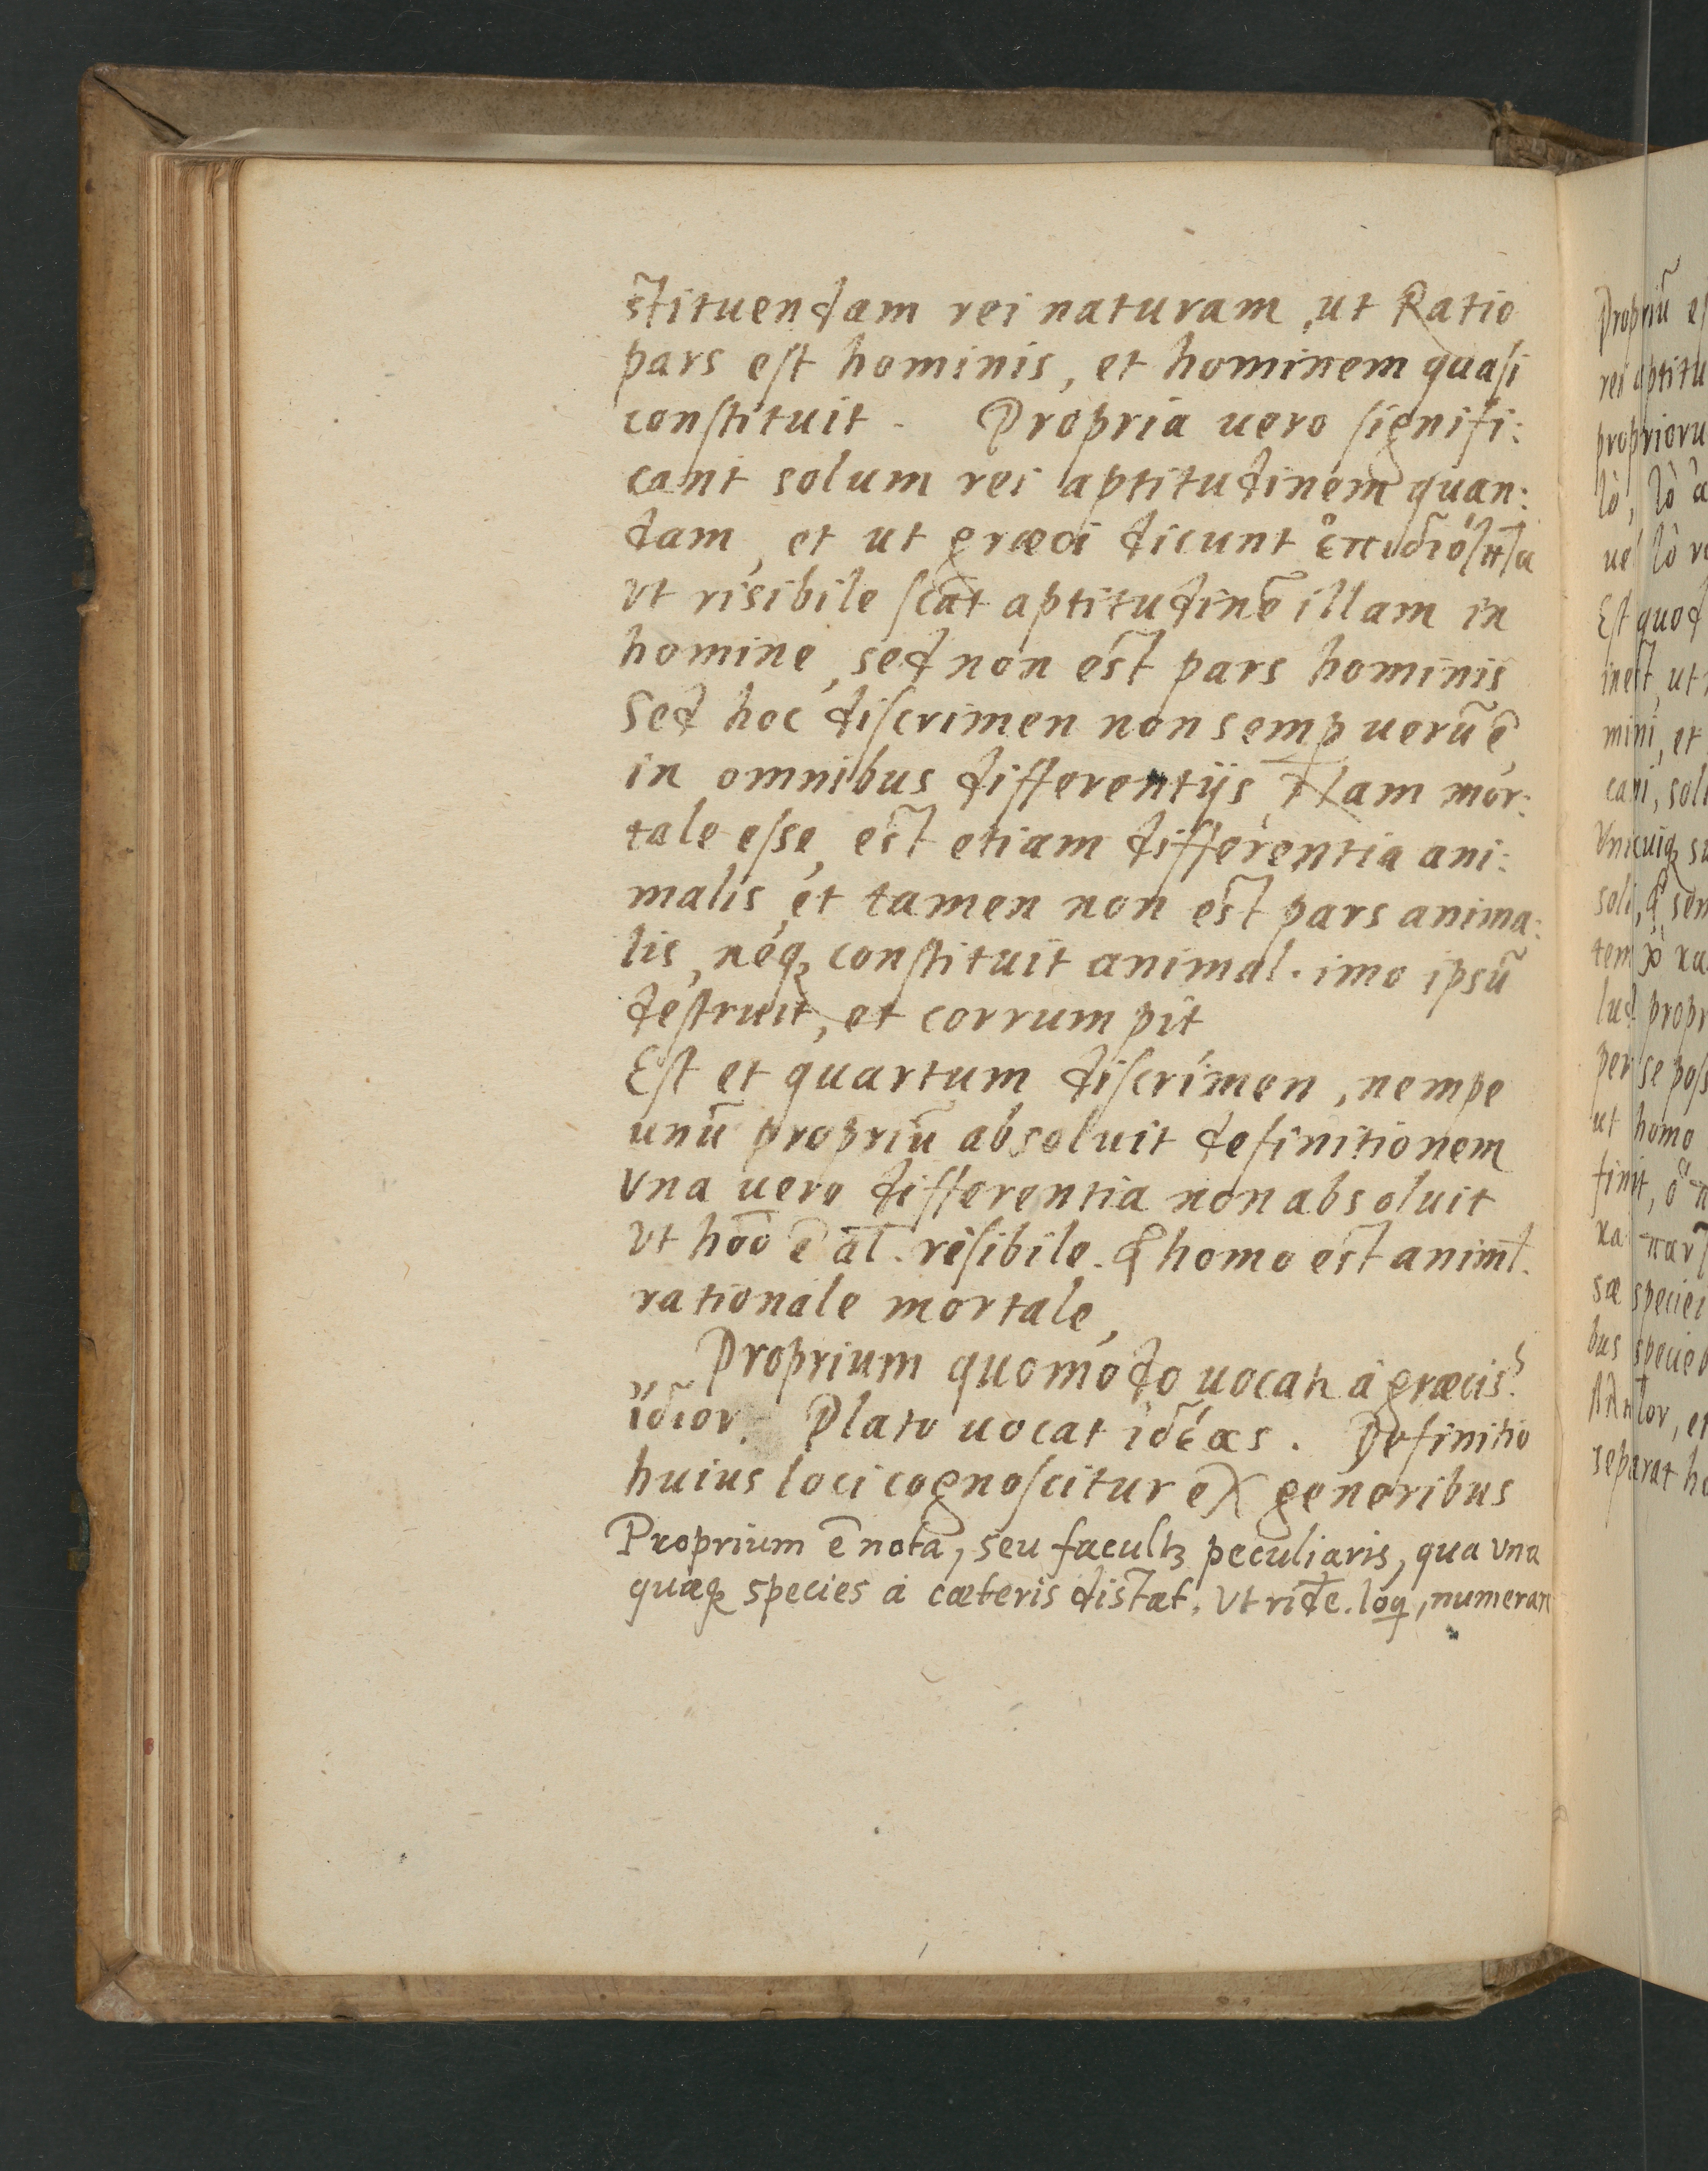 stituendam rei naturam, ut Ratio
pars est hominis, et hominem quasi
constituit. Propria uero signifi:
cant solum rei aptitudinem quan:
dam, et ut græci dicunt
Vt risibile scāt aptitudinē illam in
homine, sed non est pars hominis
Sed hoc discrimen non semꝑ uerū ē,
in omnibus differentijs, Nam mor:
tale esse, est etiam differentia ani:
malis, et tamen non est pars anima:
lis, neqꝫ constituit animal. imo ipsū
destruit, et corrumpit
Est et quartum discrimen, nempe
unū propriū absoluit definitionem
Vna uero differentia non absoluit
Vt hōo ē āl. risibile. homo est animl.
rationale mortale,
Proprium quomodo uocat̃ à græcis?
ἴδιον. Plato uocat ἰδέας. Definitio
huius loci cognoscitur ex generibus
Proprium ē nota, seu facultꝫ peculiaris, qua vna
quæqꝫ species à cæteris distat, Vt ridē. loq, numerare
Propriū es
rei aptitu
proprioru
lò, lò a
uel lò
Est quod
inest, ut
mini, et
cani, soli
Vnicuiqꝫ su
soli, sem
propr
per se poss
ut homo
finit,
sæ speciei
bus specieb
et
separat ho